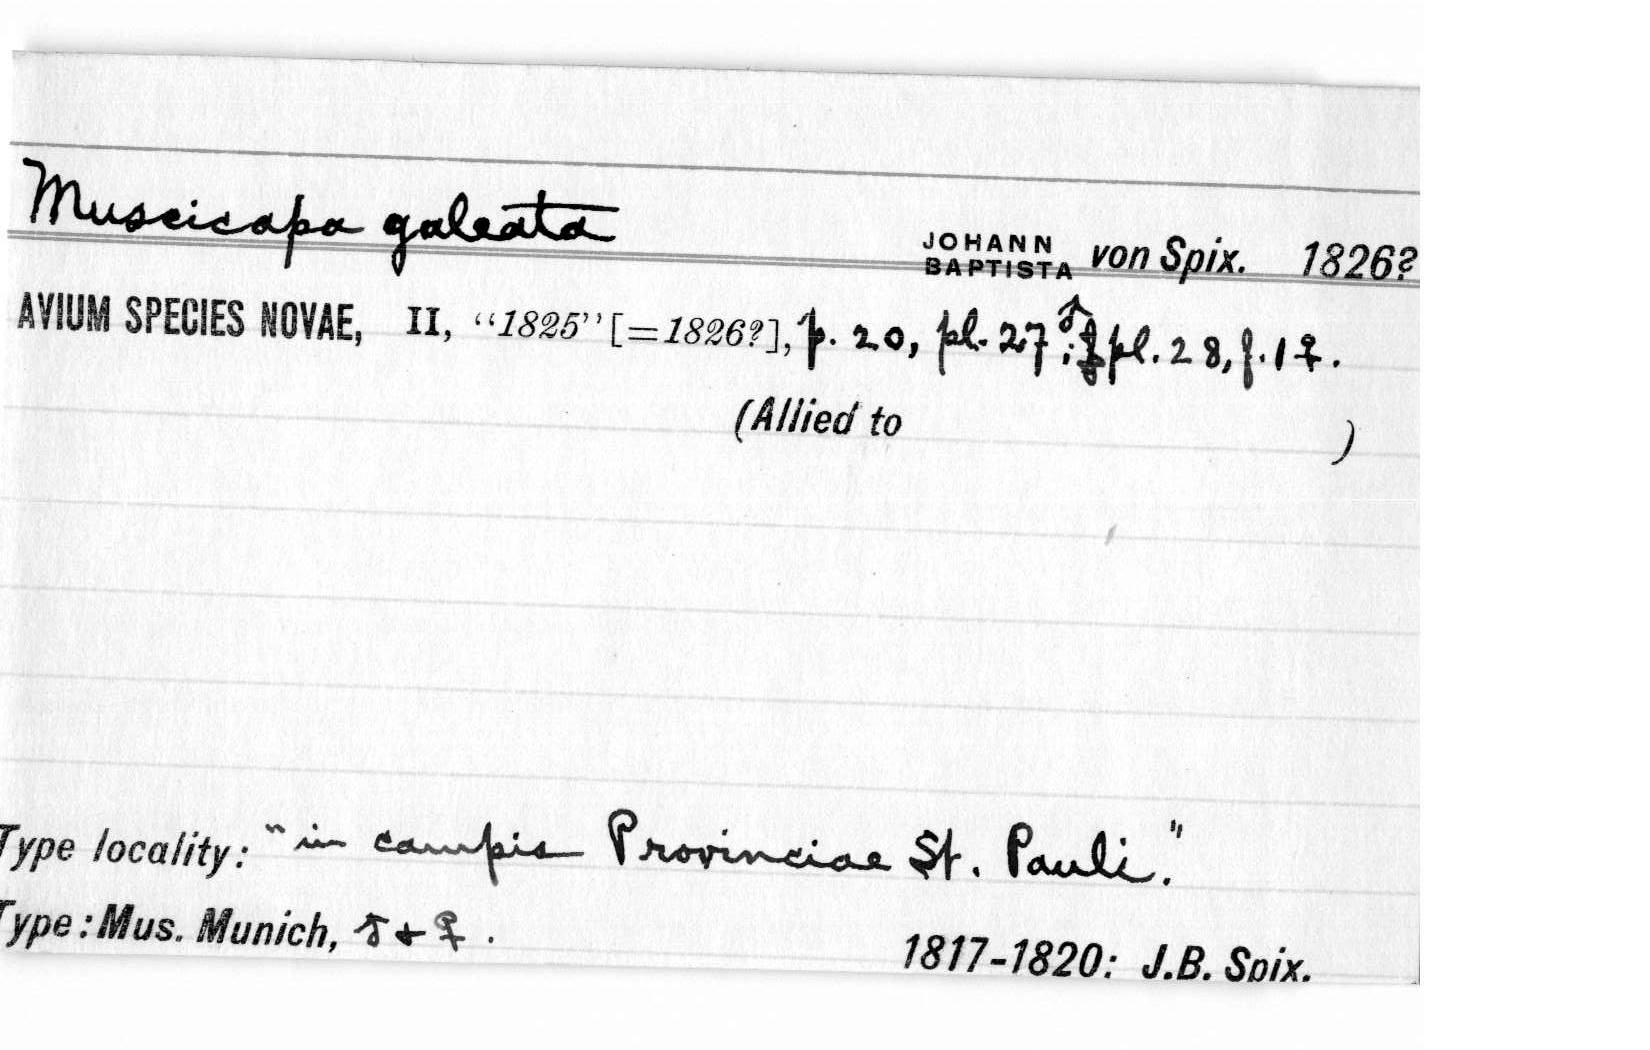 Muscicapa galeata JOHANN BAPTISTA von Spix. 1826?
AVIUM SPECIES NOVAE, II, "1825" [=1826?], p. 20, pl. 27 ♂; pl. 28, f. 1 ♀.
(Allied to )
Type locality: "in campis Provinciae St. Pauli."
Type: Mus. Munich, ♂ + ♀.
1817-1820: J.B. Spix.